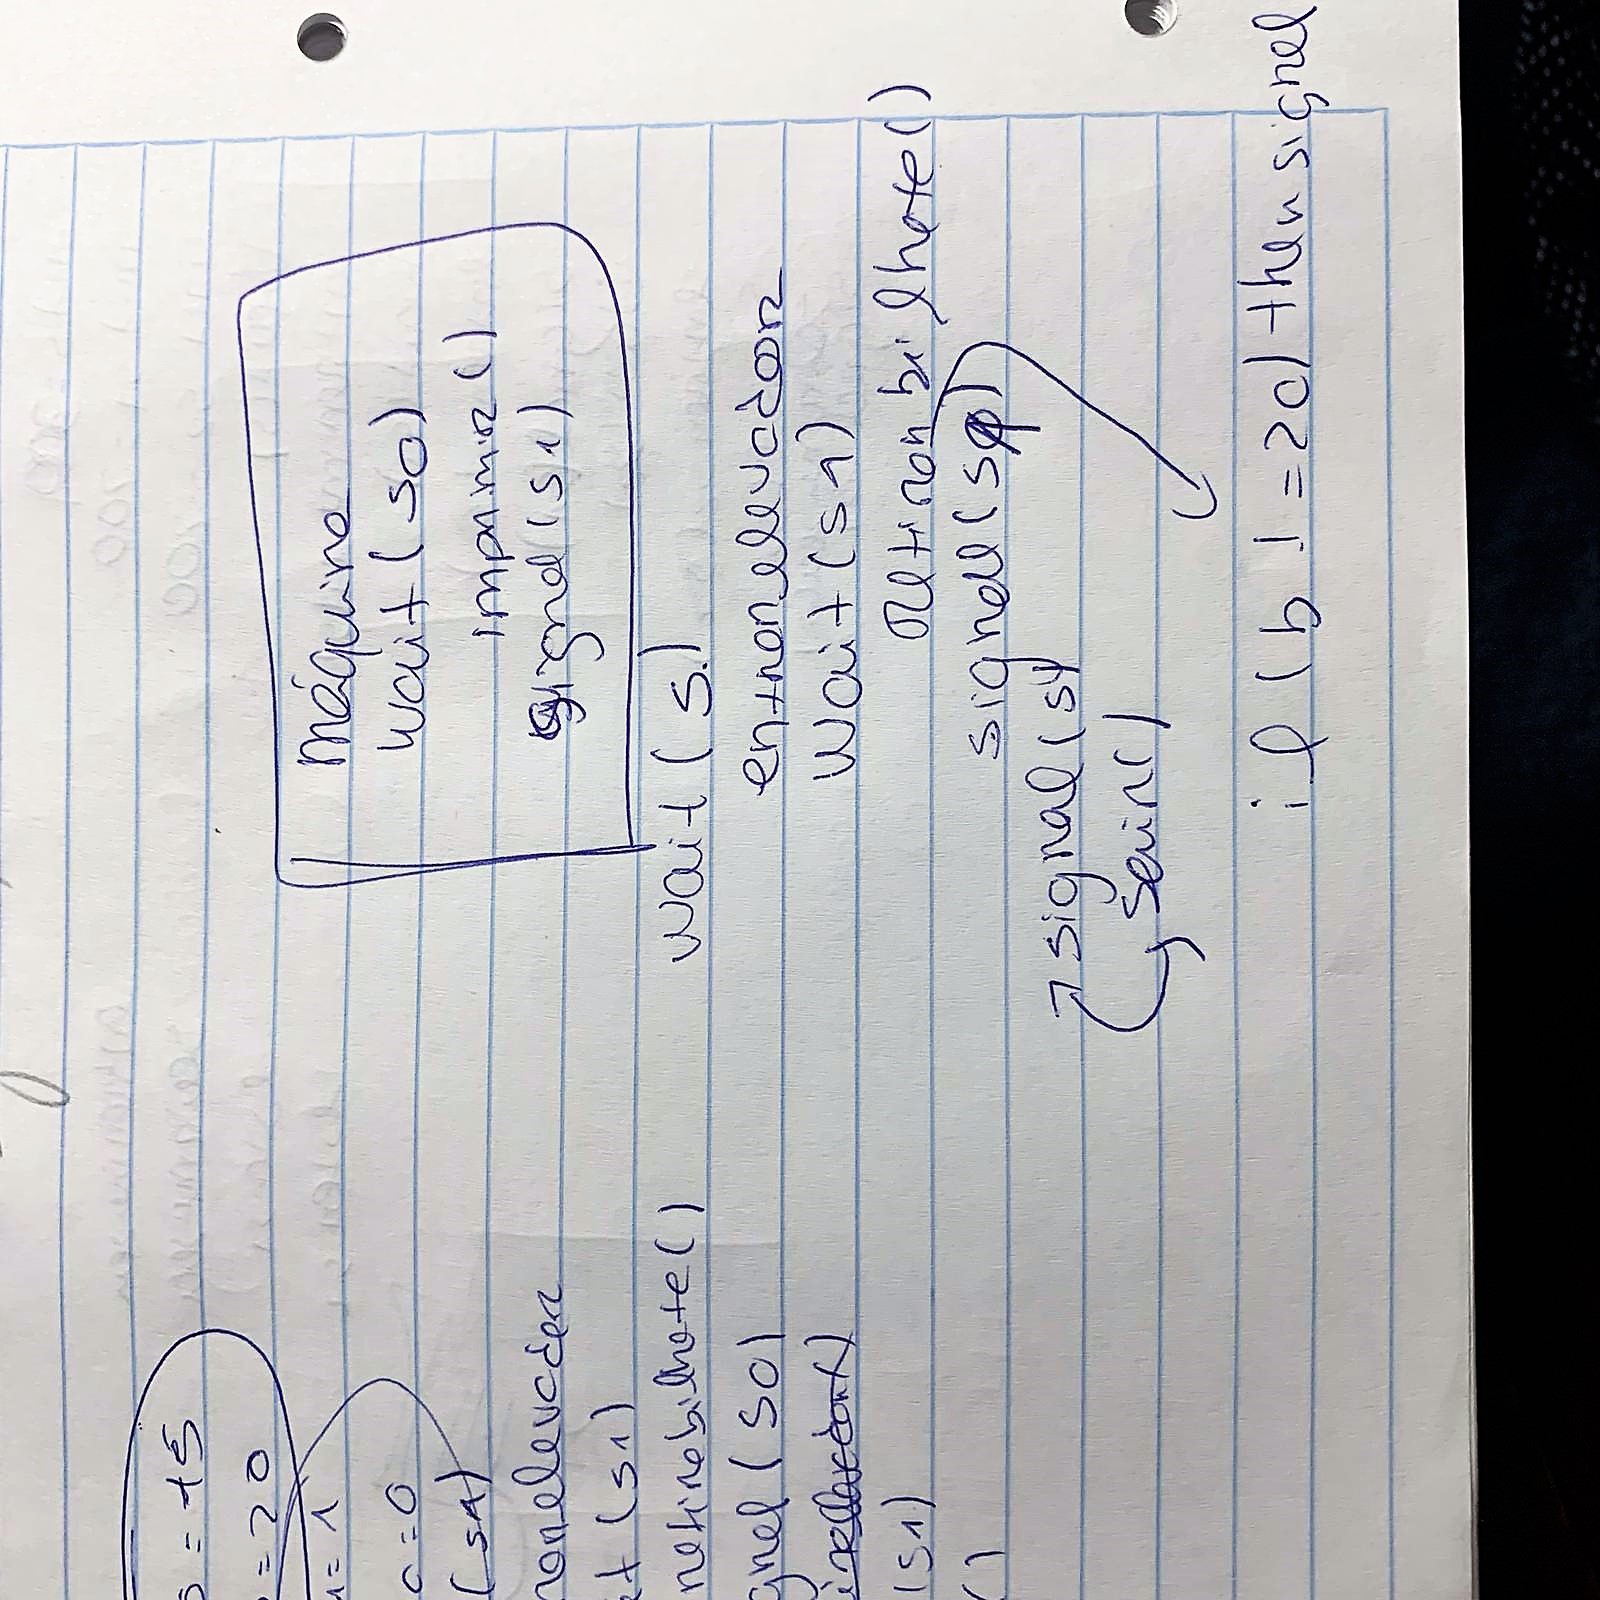 s = 15
= 20
= 1
c = 0
(s1)
nonelevador
t (s1)
retirabilhete()
gnal (s0)
(s1)
()
máquina
wait (s0)
imprimir ()
signal (s1)
wait (s.)
entronelevador
wait (s1)
retiron bilhete()
signall (s)
signal (s)
sair()
if (b != 20) then signal